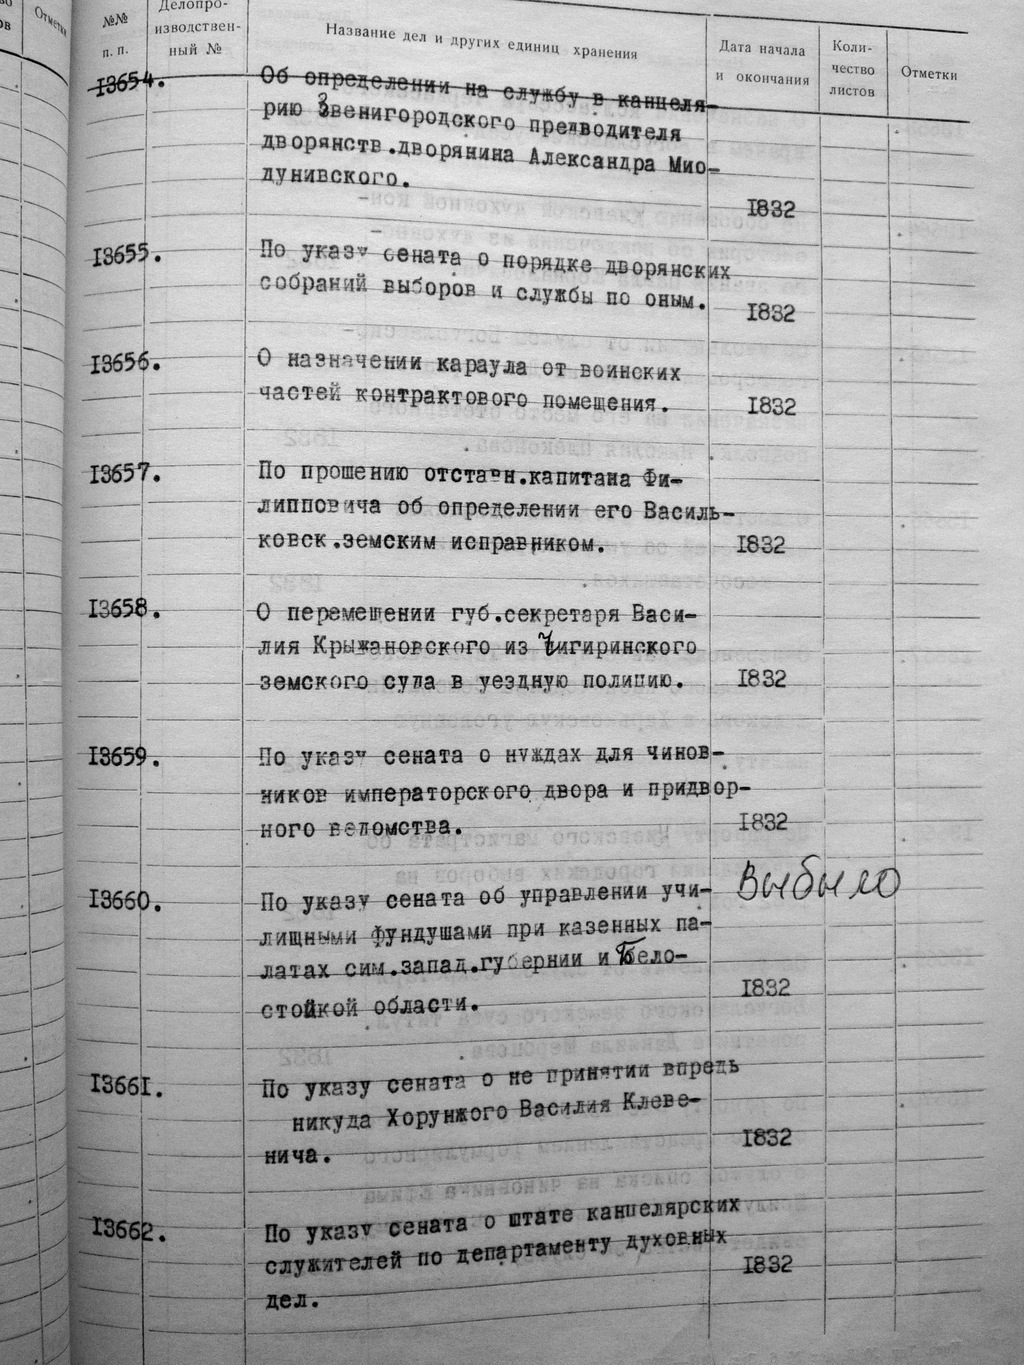 Отметки
№№
п. п.
Делопро-
изводствен-
ный №
Название дел и других единиц хранения
Дата начала
и окончания
Коли-
чество
листов
Отметки
13654.
Об определении на службу в канцеля-
рию Звенигородского предводителя
дворянств.дворянина Александра Мио-
дунивского.
1832
13655.
По указу сената о порядке дворянских
собраний выборов и службы по оным.
1832
13656.
О назначении караула от воинских
частей контрактового помещения.
1832
13657.
По прошению отставн.капитана Фи-
липповича об определении его Василь-
ковск.земским исправником.
1832
13658.
О перемещении губ.секретаря Васи-
лия Крыжановского из Чигиринского
земского суда в уездную полицию.
1832
13659.
По указу сената о нуждах для чинов-
ников императорского двора и придвор-
ного ведомства.
1832
13660.
По указу сената об управлении учи-
лищными фундушами при казенных па-
латах сим.запад.губернии и Бело-
стойкой области.
Выбыло
1832
13661.
По указу сената о не принятии впредь
никуда Хорунжого Василия Клеве-
нича.
1832
13662.
По указу сената о штате канцелярских
служителей по департаменту духовных
дел.
1832